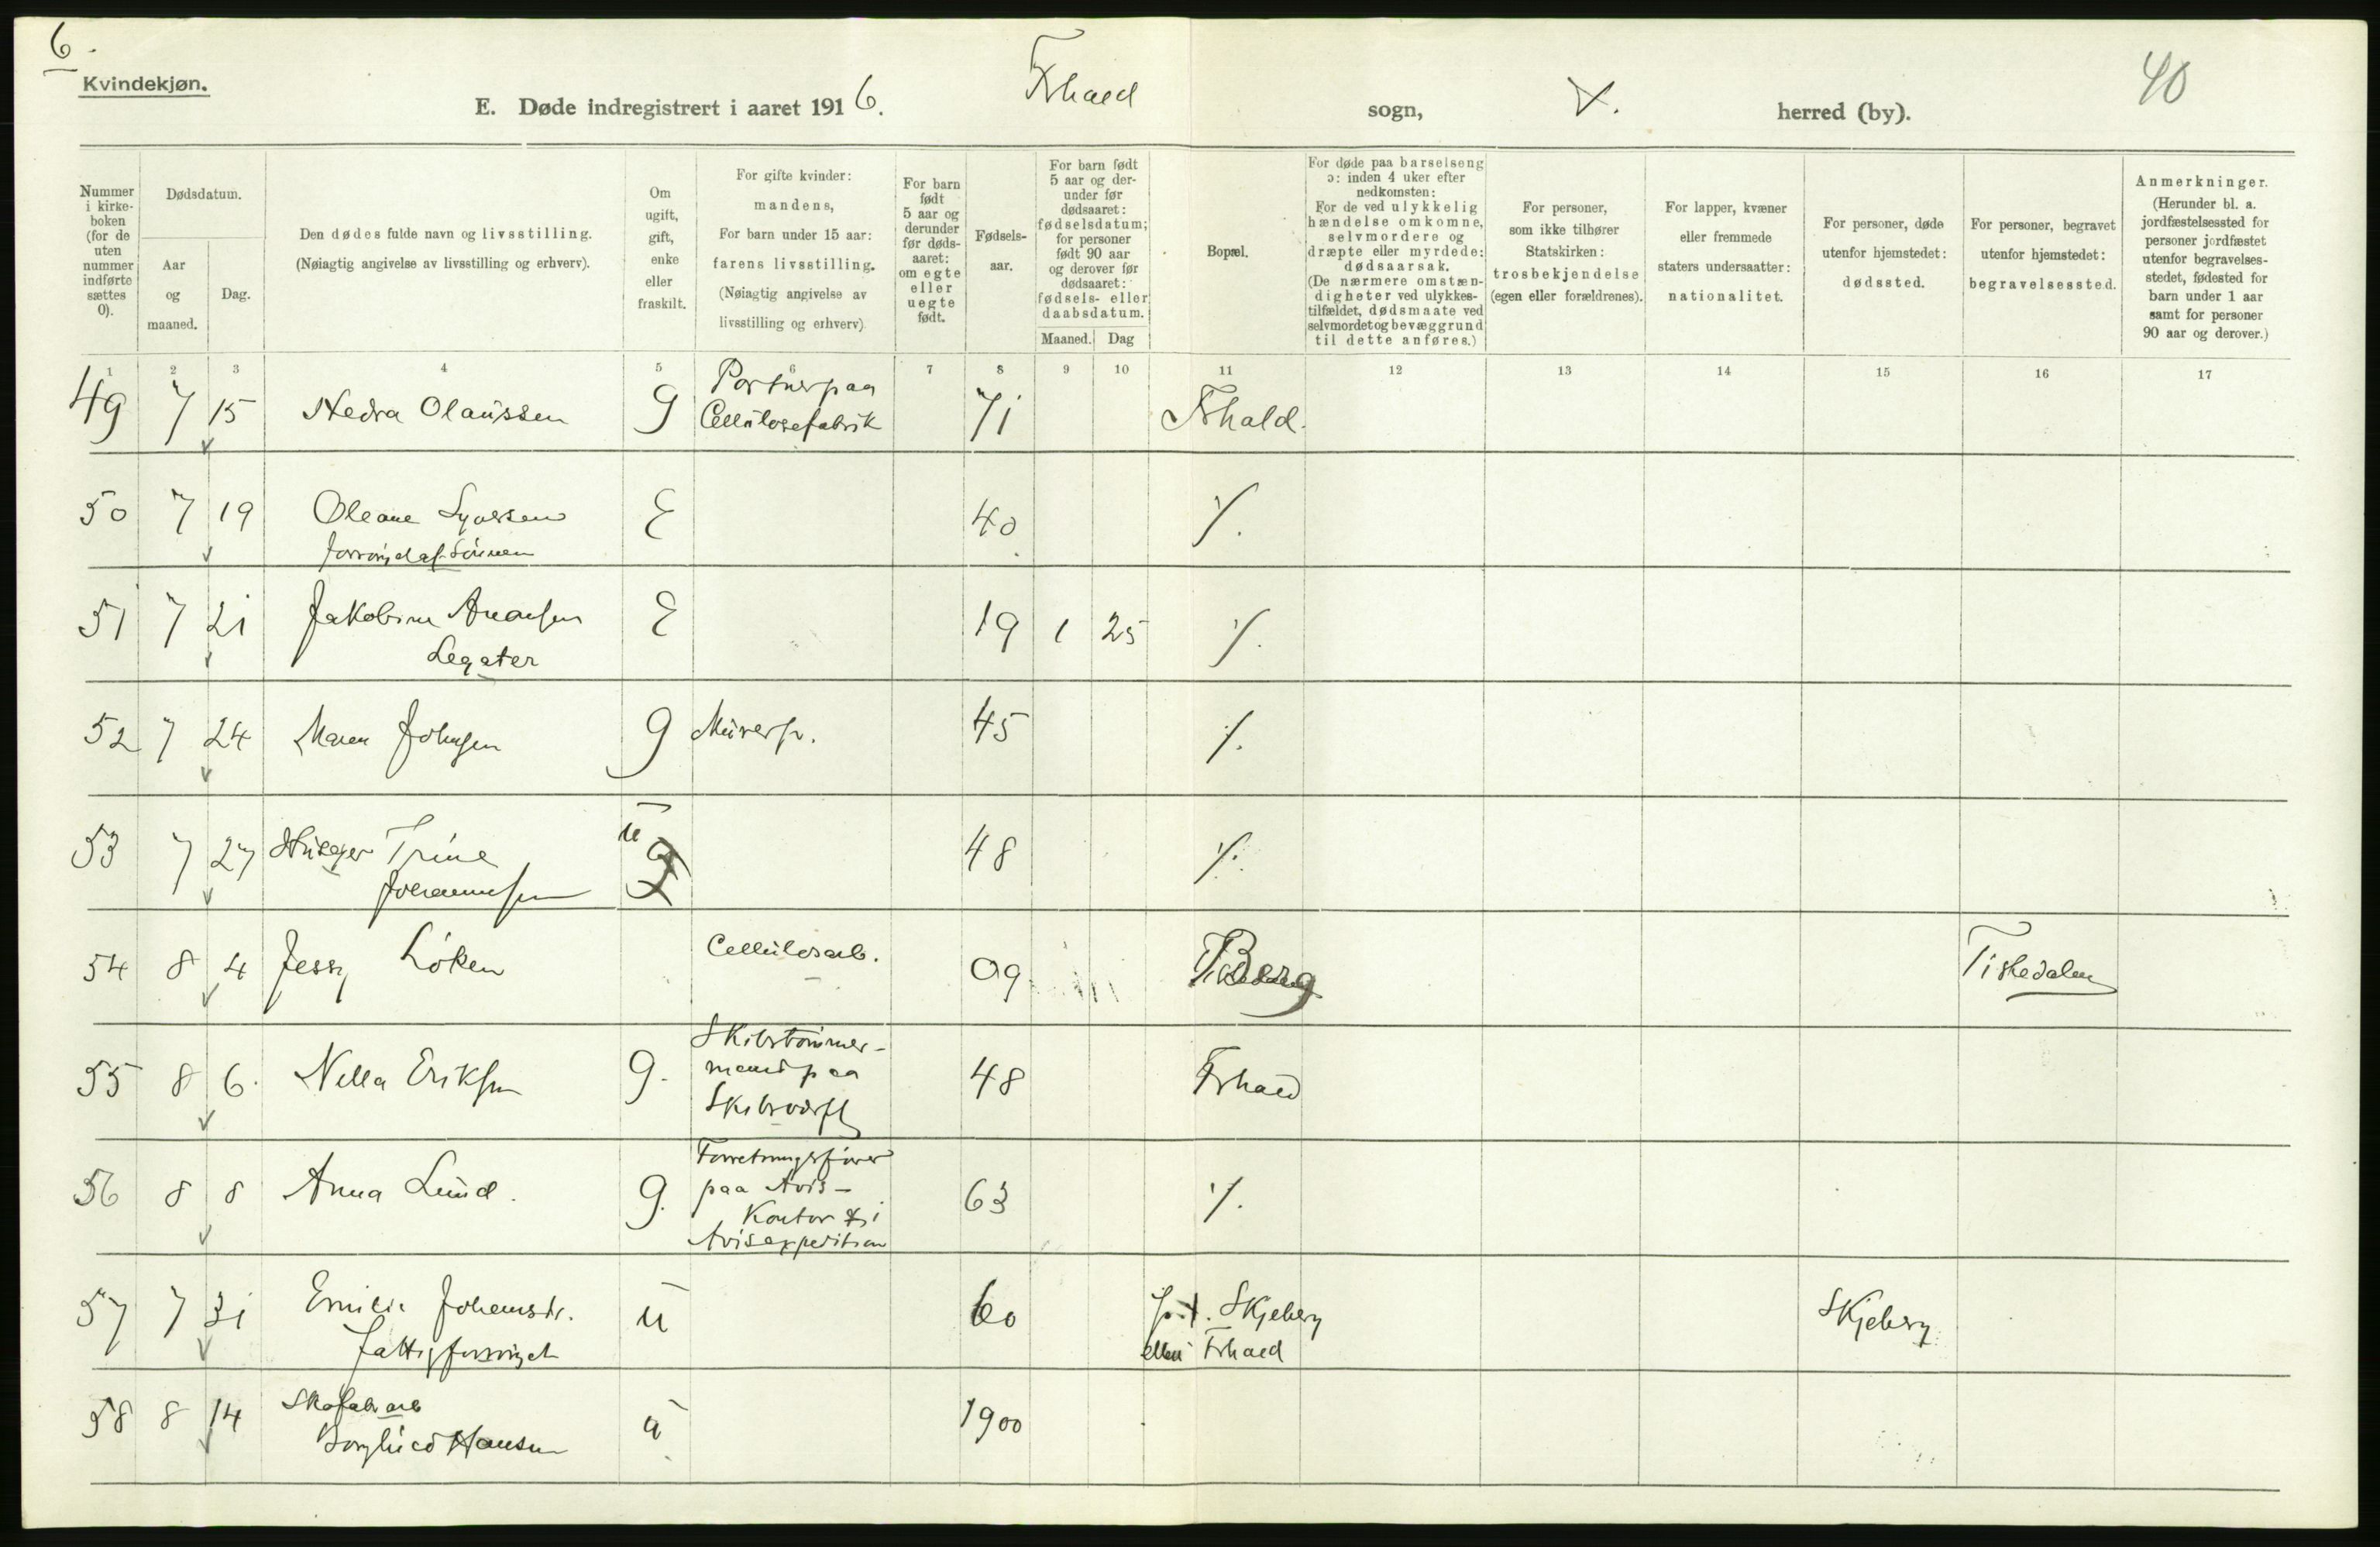 6.
Kvindekjøn.
E. Døde indregistrert i aaret 1916. Frhald sogn, herred (by).
40
Nummer i kirke-boken (for de uten nummer indførte sættes 0).
Dødsdatum.
Aar og maaned.
Dag.
Den dødes fulde navn og livsstilling.
(Nøiagtig angivelse av livsstilling og erhverv).
Om ugift, gift, enke eller fraskilt.
For gifte kvinder:
mandens,
For barn under 15 aar:
farens livsstilling.
(Nøiagtig angivelse av
livsstilling og erhverv)
For barn født 5 aar og derunder før døds-aaret: om egte eller uegte født.
Fødsels-aar.
For barn født 5 aar og der-under før dødsaaret: fødselsdatum; for personer født 90 aar og derover før dødsaaret: fødsels- eller daabsdatum.
Maaned. Dag
Bopæl.
For døde paa barselseng
ɔ: inden 4 uker efter
nedkomsten:
For de ved ulykkelig
hændelse omkomne,
selvmordere og
dræpte eller myrdede:
dødsaarsak.
(De nærmere omstæn-
digheter ved ulykkes-
tilfældet, dødsmaate ved
selvmordet og bevæggrund
til dette anføres.)
For personer,
som ikke tilhører
Statskirken:
trosbekjendelse
(egen eller forældrenes).
For lapper, kvæner
eller fremmede
staters undersaatter:
nationalitet.
For personer, døde
utenfor hjemstedet:
dødssted.
For personer, begravet
utenfor hjemstedet:
begravelsessted.
Anmerkninger.
(Herunder bl. a.
jordfæstelsessted for
personer jordfæstet
utenfor begravelses-
stedet, fødested for
barn under 1 aar
samt for personer
90 aar og derover.)
1 2 3 4 5 6 7 8 9 10 11 12 13 14 15 16 17
49 7 15 Hedva Olaussen g Portner paa Cellulosefabrik 71 Frhald.
50 7 19 Oleane Syversen E 40 ٪.
forsörget af Sönnen
51 7 21 Jakobine Aronsen E 19 1 25 ٪.
Legater
52 7 24 Maren Johnsen g Murersv. 45 ٪.
53 7 27 Trine u 48 ٪.
Johannesen
54 8 4 Jessy Löken Cellulosarb. 09 Berg Tistedalen
55 8 6. Nella Eriksen g. Skibstömmer-
mand paa
Skibsværft 48 Frhald
56 8 8 Anna Lund. g. Forretningsförer
paa Avis-
Kontor i
Avisexpedition 63 ٪.
57 7 31 Emilie Johansdr. u 60 p.t. Skjeberg Skjeberg
fattigforsörget ellers Frhald
58 8 14 Skofabr arb u 1900
Borghild Hansen